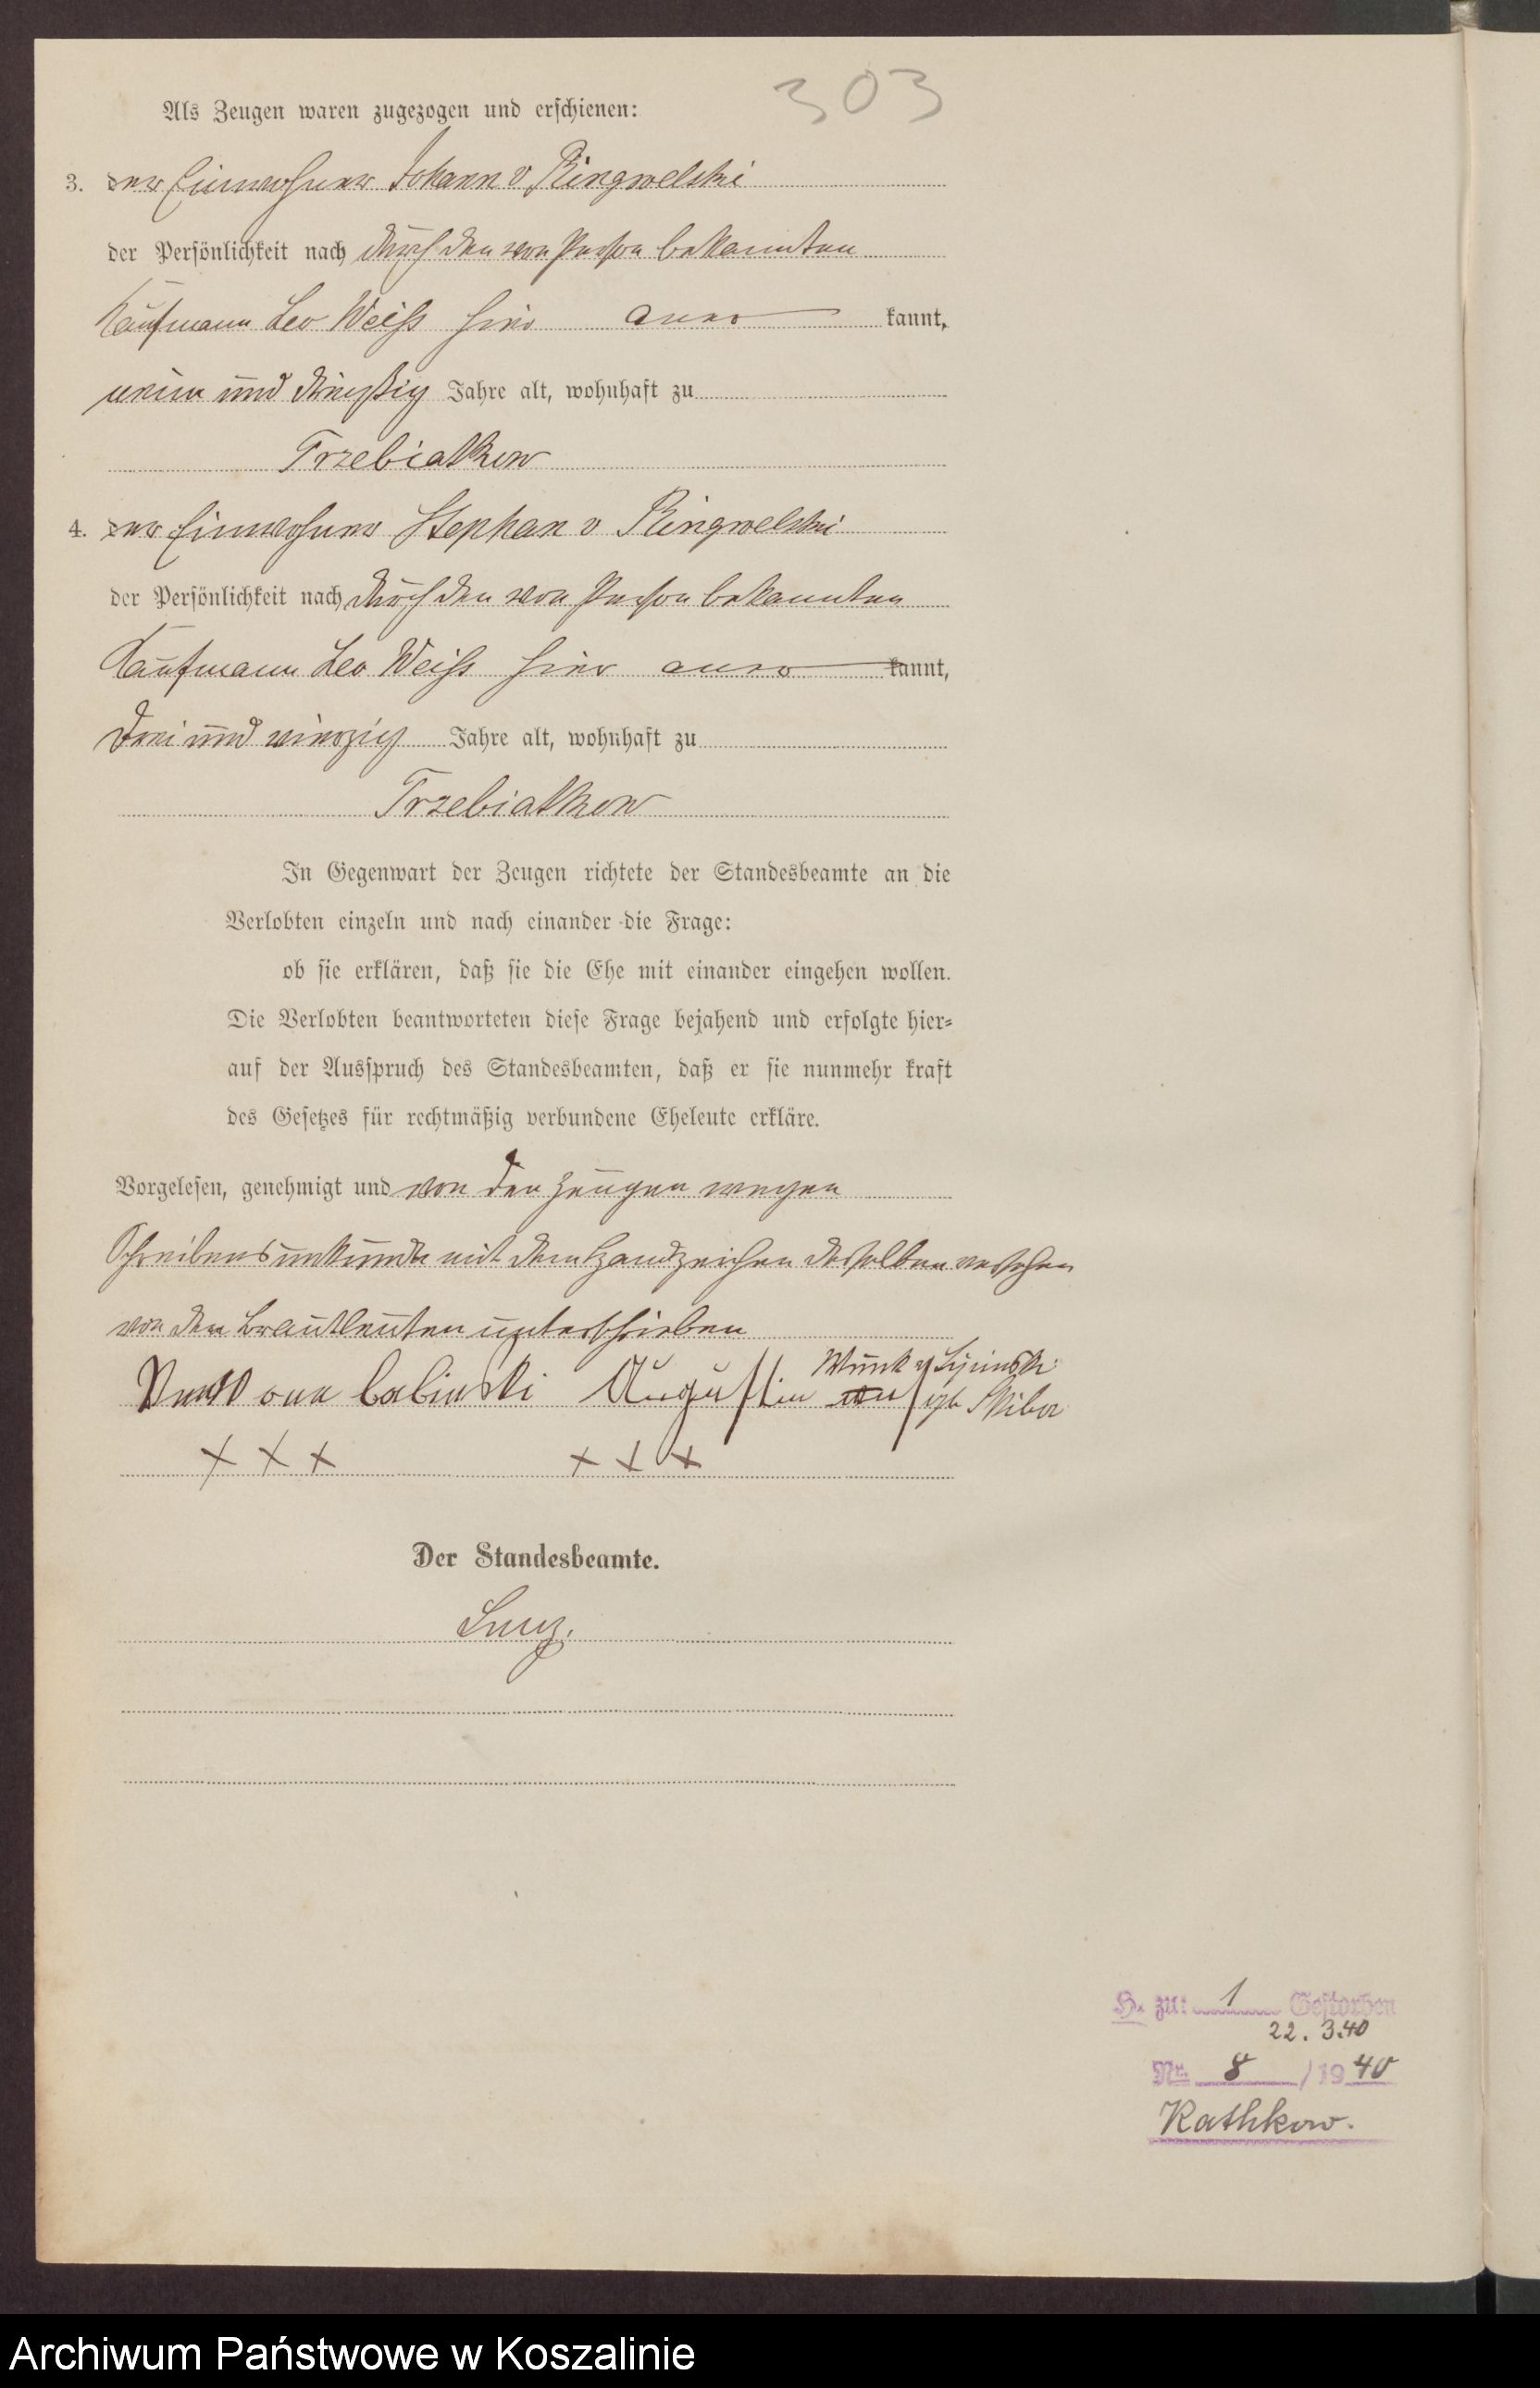 303
Als Zeugen waren zugezogen und erschienen:
3. der Einwohner Johann v Ringwelski
der Persönlichkeit nach durch den von Person bekannten
Kaufmann Leo Weiss hier aner kannt,
neun und dreißig Jahre alt, wohnhaft zu
Trzebiatkow
4. der Einwohner Stephan v Ringwelski
der Persönlichkeit nach durch den von Person bekannten
Kaufmann Leo Weiss hier aner kannt,
drei und vierzig Jahre alt, wohnhaft zu
Trzebiatkow
In Gegenwart der Zeugen richtete der Standesbeamte an die
Verlobten einzeln und nach einander die Frage:
ob sie erklären, daß sie die Ehe mit einander eingehen wollen.
Die Verlobten beantworteten diese Frage bejahend und erfolgte hier-
auf der Ausspruch des Standesbeamten, daß er sie nunmehr kraft
des Gesetzes für rechtmäßig verbundene Eheleute erkläre.
Vorgelesen, genehmigt und von den Zeugen wegen
Schreibensunkunde mit dem Handzeichen derselben versehen
von den Brautleuten unterschrieben
Augustin
+ + + + + +
Der Standesbeamte.
H. zu: 1 Gestorben
22. 3.40
Nr. 8 / 1940
Rathkow.
Archiwum Państwowe w Koszalinie